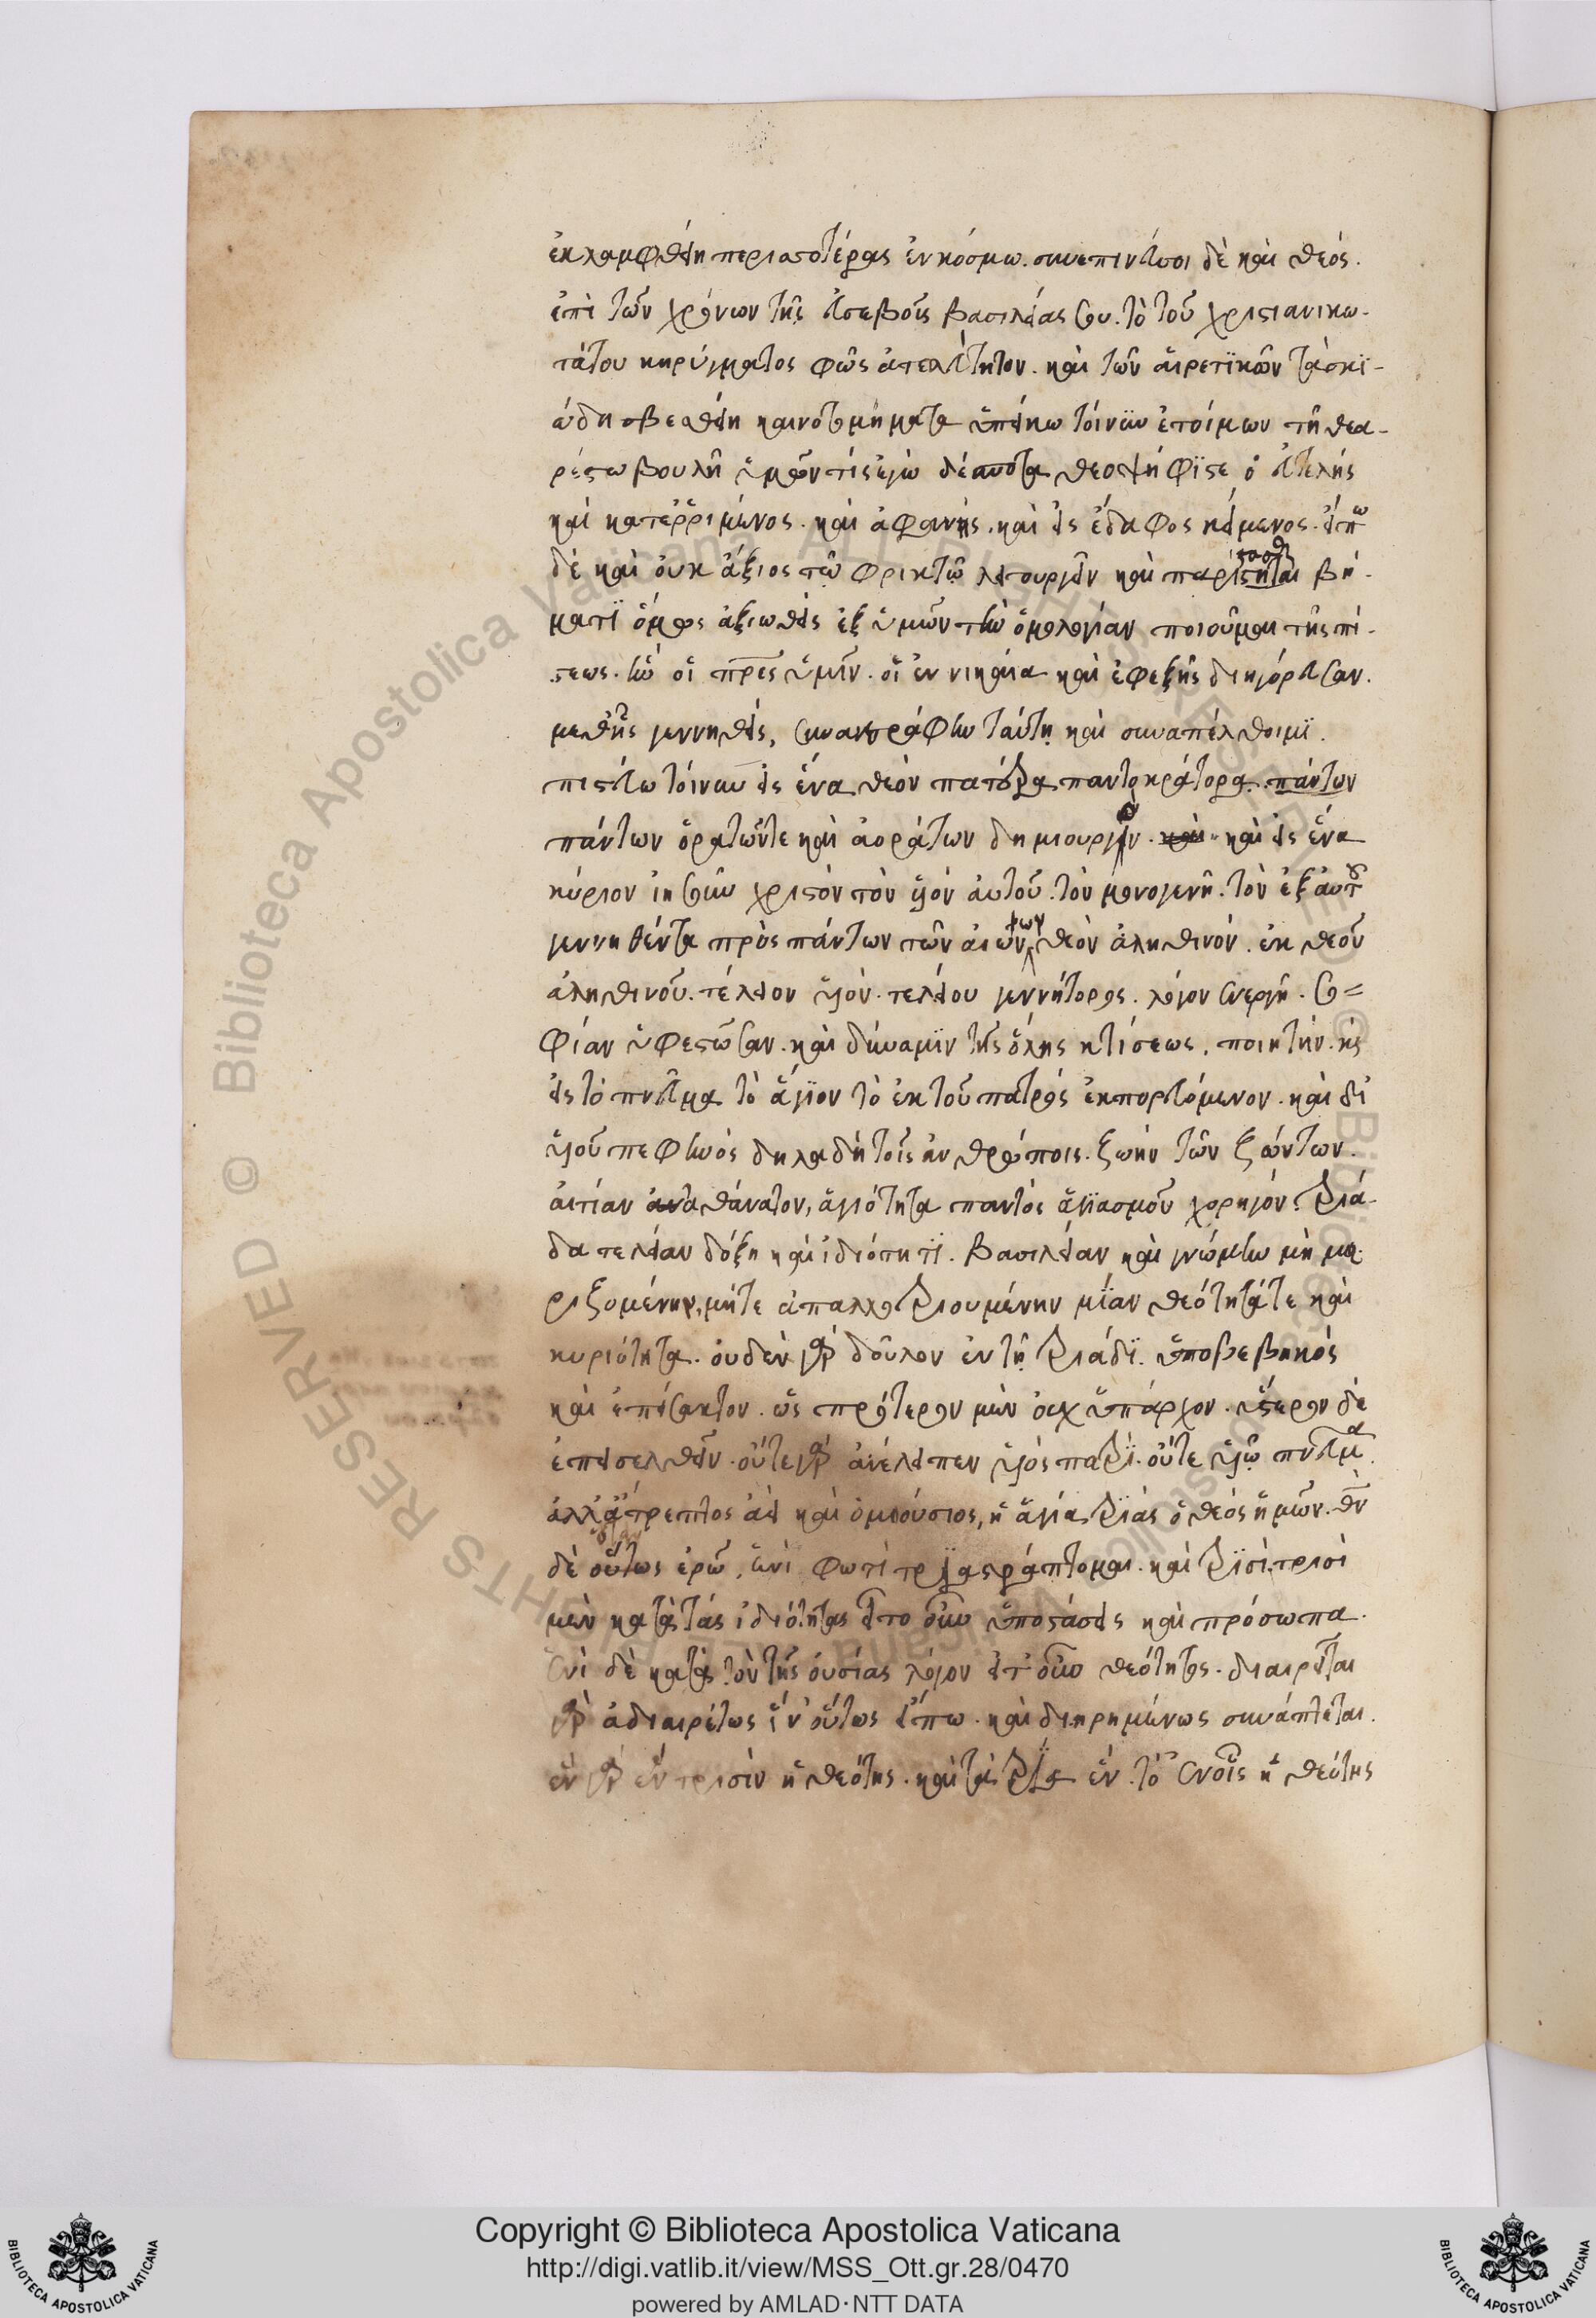 ἐκλαμφθείη περισσοτέρας ἐν κόσμω. συνεπινεύσοι δὲ καὶ θεός.
ἐπὶ τῶν χρόνων τῆς εὐσεβοῦς βασιλείας σου. τὸ τοῦ χριστιανικω-
τάτου κηρύγματος φῶς ἀτελεύτητον. καὶ τῶν αἱρετϊκῶν τὰ σκϊ-
ώδη σβεσθείη καινοτομήματα ὑπείκω τοίνυν ἑτοίμων τῆ θεα-
ρέστω βουλῆ ὑμῶν τίς ἐγὼ δέσποτα θεοψήφϊστε ὁ εὐτελής
καὶ κατερριμένος. καὶ ἀφανὴς. καὶ εἰς ἔδαφος κείμενος. εἴπω
δὲ καὶ οὐκ ἄξιος τῶ φρικτῶ λειτουργεῖν καὶ παρίστηται βή-
ματϊ ὅμως ἀξιωθεὶς ἐξ ὑμῶν τὴν ὁμολογίαν ποιοῦμαι τῆς πί-
στεως. ἣν οἱ πρες ὑμῖν. οἱ ἐν νικαία καὶ ἐφεξῆς διηγόρευσαν.
μεθ' ἧς γεννηθείς, συνανετράφην ταύτη καὶ συναπέλθοιμϊ.
πιστεύω τοίνυν εἰς ἕνα θεὸν πατέρα παντοκράτορα. πάντων
πάντων ὁρατῶν τε καὶ ἀοράτων δημιουργόν. καὶ καὶ εἰς ἕνα
κύριον ἰησοῦν χριστὸν τὸν υἱὸν αὐτοῦ. τὸν μονογενῆ. τὸν ἐξ αὐτοῦ
γεννηθέντα πρὸς πάντων τῶν αἰώνων θεὸν ἀληθινόν. ἐκ θεοῦ
ἀληθινοῦ. τέλειον υἱὸν. τελείου γεννήτορος. λόγον ἐνεργῆ. σο=
φίαν ὑφεστῶσαν. καὶ δύναμϊν τῆς ὅλης κτίσεως. ποιητήν. καὶ
εἰς τὸ πνεῦμα τὸ ἅγϊον τὸ ἐκ τοῦ πατρὸς ἐκπορευόμενον. καὶ δι'
υἱοῦ πεφηνὸς δηλαδὴ τοῖς ἀνθρώποις. ζωὴν τῶν ζώντων.
αἰτίαν ἀναθάνατον, ἁγιότητα παντὸς ἁγϊασμοῦ χορηγόν. τριά-
δα τελείαν δόξη καὶ ἰδιότητϊ. βασιλείαν καὶ γνώμην μὴ με-
ριζομένην, μήτε ἀπαλλοτριουμένην μϊαν θεότητά τε καὶ
κυριότητα. οὐδὲν γὰρ δοῦλον ἐν τῆ τριάδϊ. ὑποβεβηκός
καὶ ἐπείσακτον. ὡς πρότερον μὲν οὐχ ὑπάρχον. ὕστερον δὲ
ἐπεισελθών. οὔτε γὰρ ἀνέλειπεν υἱὸς πατρϊ. οὔτε υἱῶ πνεῦμα.
ἀλλ' ἄτρεπτος ἀεὶ καὶ ὁμοούσιος, ἡ ἁγία τρϊὰς ὁ θεὸς ἡμῶν. θν
δὲ οὕτως ἐρῶ, ἑνὶ φωτὶ περιαστράπτομαι. καὶ τρϊσὶ. τρισὶ
μὲν κατὰ τὰς ἰδιότητας εἴτουν ὑποστάσεις καὶ πρόσωπα.
ἑνὶ δὲ κατὰ τὸν τῆς οὐσίας λόγον εἴτουν θεότητος. διαιρεῖται
γὰρ ἀδιαιρέτως ἵν' οὕτως εἴπω. καὶ διῃρημένως συνάπτεται.
ἓν γὰρ ἐν τρισὶν ἡ θεότης. καὶ τὰ τρία ἕν. τὸ ἐν οἷς ἡ θεότης
Copyright © Biblioteca Apostolica Vaticana
http://digi.vatlib.it/view/MSS_Ott.gr.28/0470
powered by AMLAD·NTT DATA